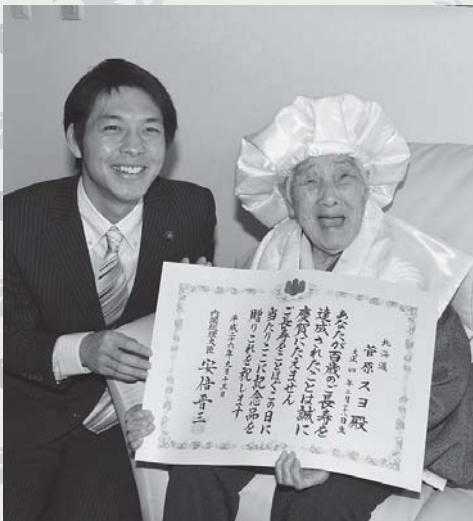 北海道
菅原スヨ殿
大正四年二月二十八日生
あなたが百歳のご長寿を
達成されたことは誠に
慶賀にたえません
ご長寿をことほぐこの日に
当たりここに記念品を
贈りこれを祝します
平成二十六年九月十五日
内閣総理大臣 安倍晋三